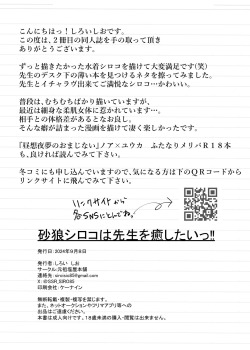 こんにちはっ！しろいしおです。
この度は、２冊目の同人誌を手の取って頂き
ありがとうございます。
ずっと描きたかった水着シロコを描けて大変満足です(笑)
先生のデスク下の薄い本を見つけるネタを擦ってみました。
先生とイチャラブ出来てご満悦なシロコ…かわいい。
普段は、むちむちばかり描いていますが、
最近は細身な柔肌女体に惹かれていまして…
相手との体格差があるとなお良し。
そんな癖が詰まった漫画を描けて凄く楽しかったです。
「昼想夜夢のおまじない」ノア×ユウカ　ふたなりメリバＲ１８本
も、良ければ読んでみて下さい。
冬コミにも申し込んでいますので、気になる方は下のＱＲコードから
リンクサイトに飛んでみて下さい。
リンクサイトから
各SNSにとんでね。
砂狼シロコは先生を癒したいっ!!
発行日：2024年9月8日
発行者：しろい　しお
サークル：元祖塩屋本舗
連絡先：siroisio85@gmail.com
X：@SSR_SIRO85
印刷会社：ケーナイン
無断転載・複製・複写を禁じます。
また、ネットオークションやフリマアプリ等への
出品はご遠慮ください。
本書は成人向けです。１８歳未満の購入・閲覧は出来ません。